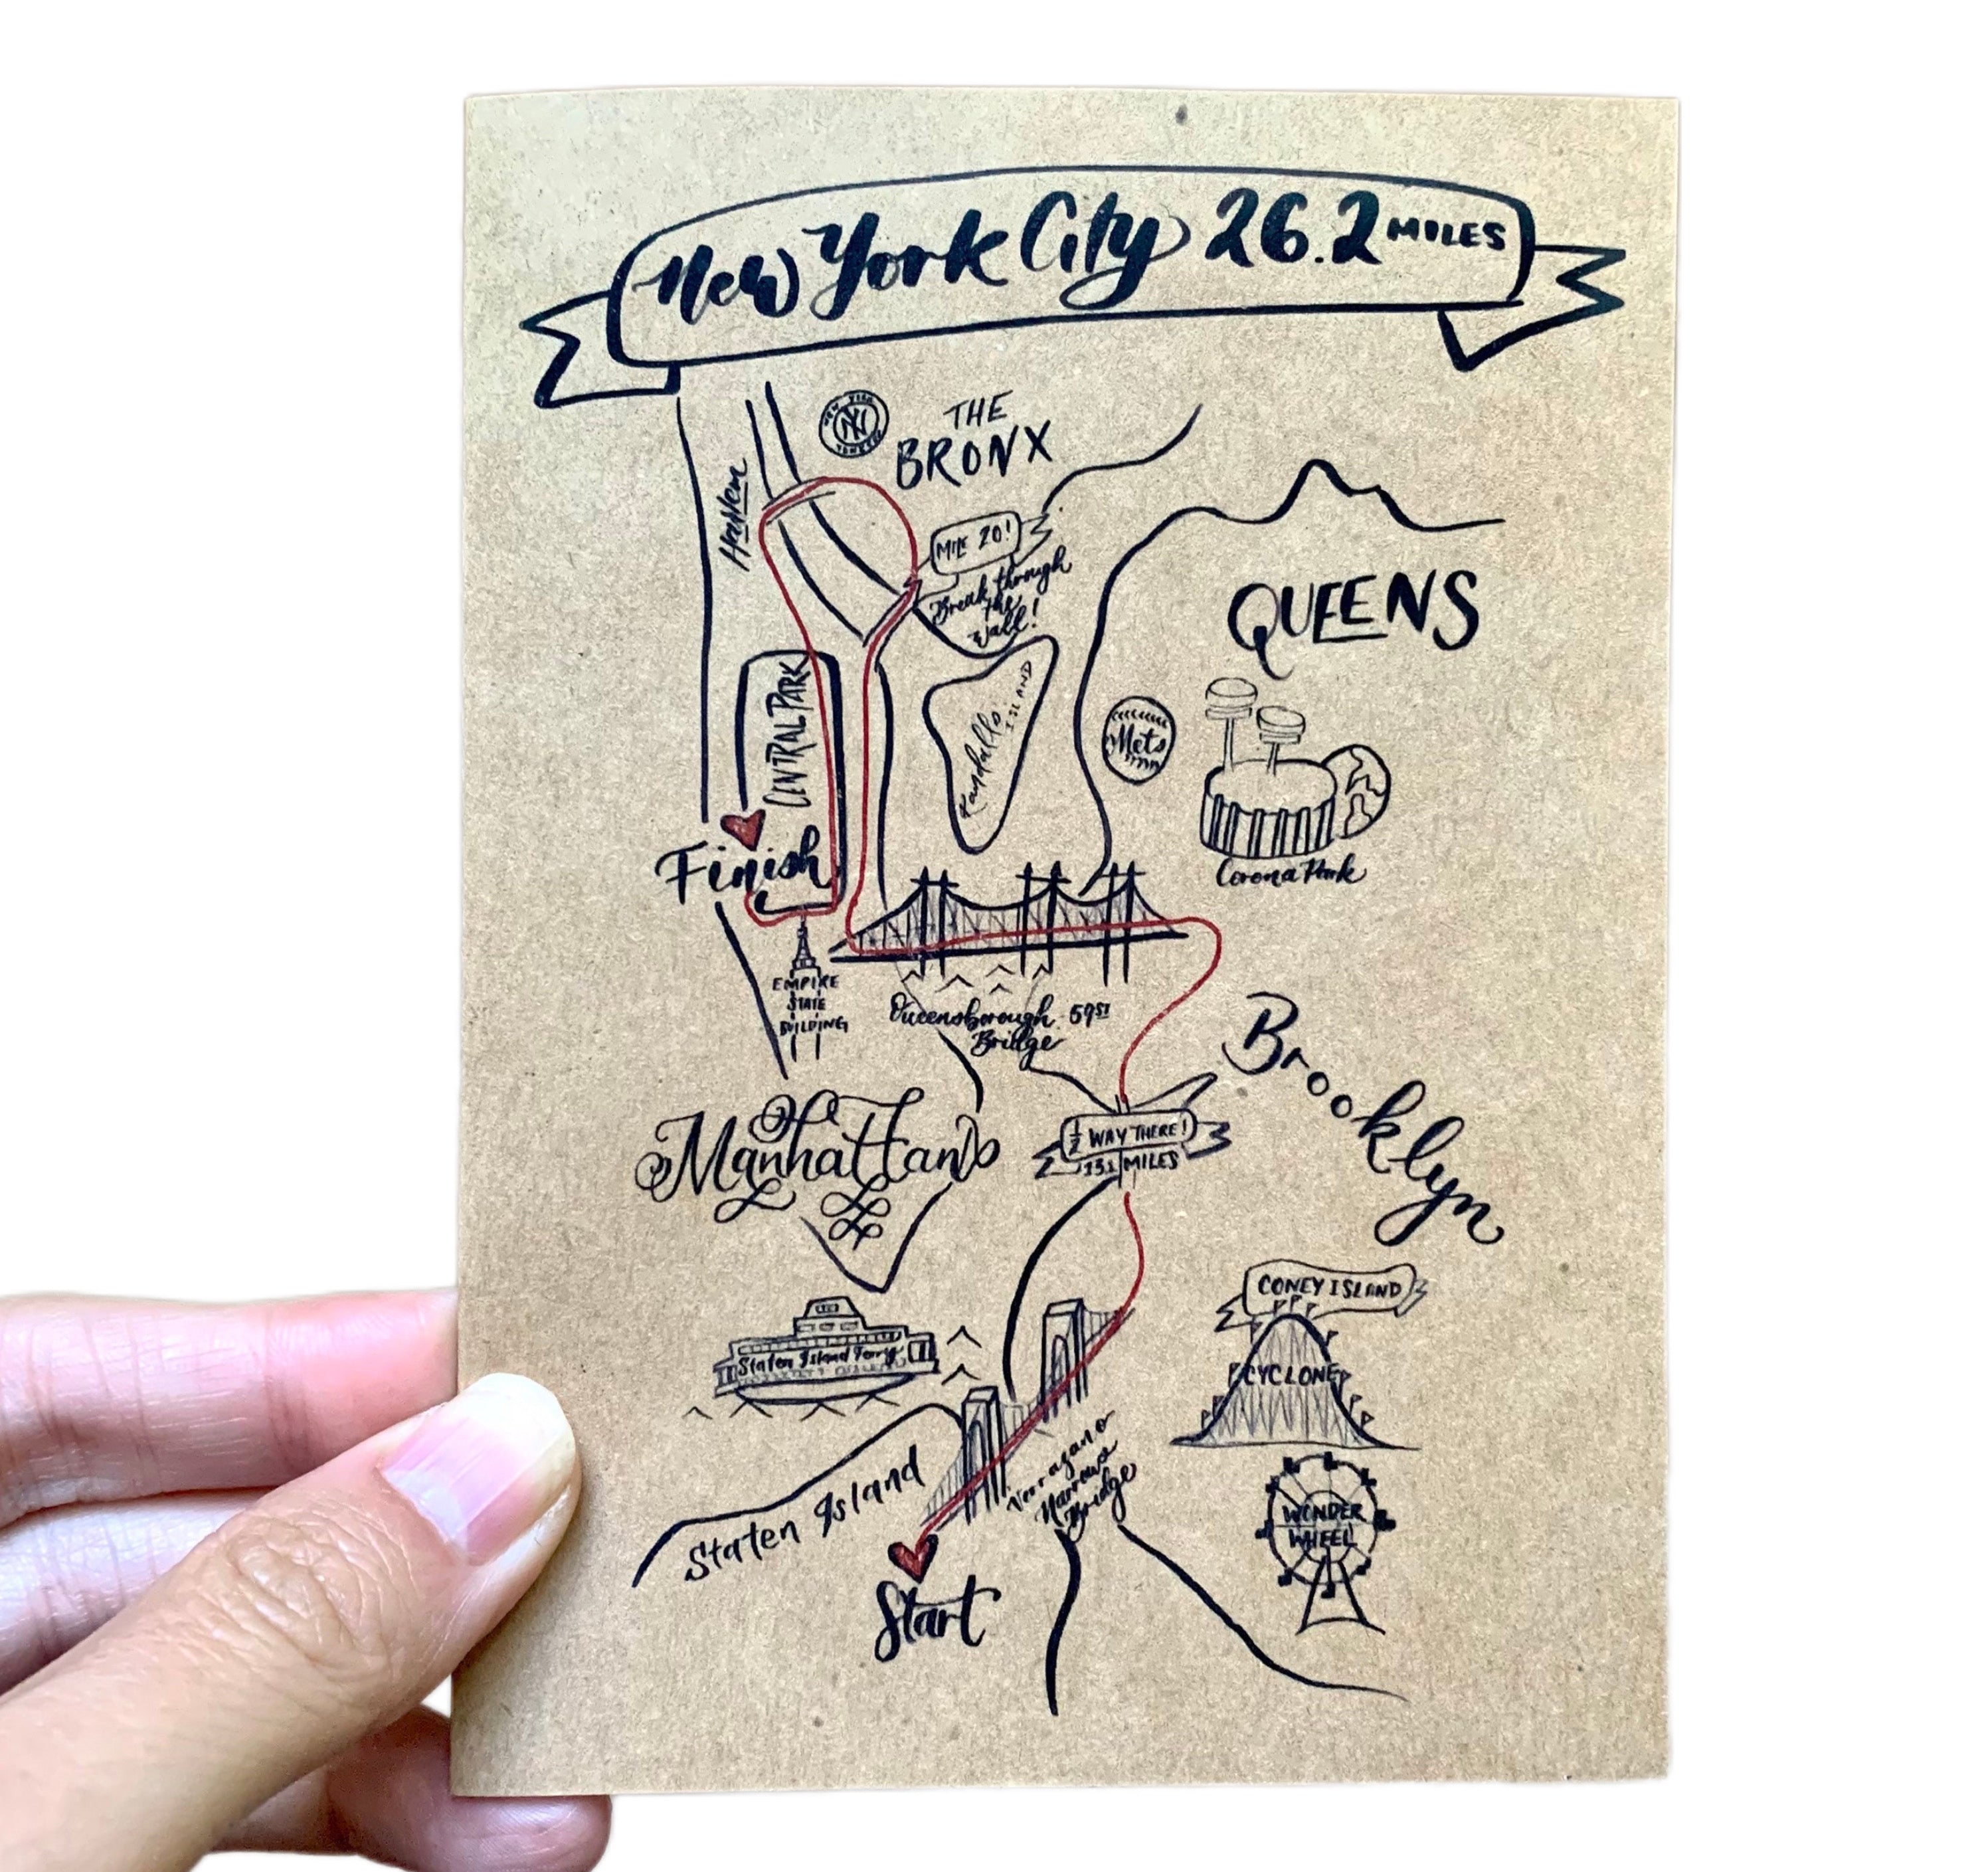 New York City 26.2 MILES
NEW YORK
NY
YANKEES
THE
BRONX
Harlem
MILE 20!
Break through
the
wall!
QUEENS
CENTRAL PARK
Randalls
ISLAND
Mets
Corona Park
Finish
EMPIRE
STATE
BUILDING
Queensborough 59ST
Bridge
Brooklyn
Manhattan
½ WAY THERE!
13.1 MILES
CONEY ISLAND
CYCLONE
Staten Island Ferry
Staten Island
Verrazano
Narrows
Bridge
WONDER
WHEEL
Start